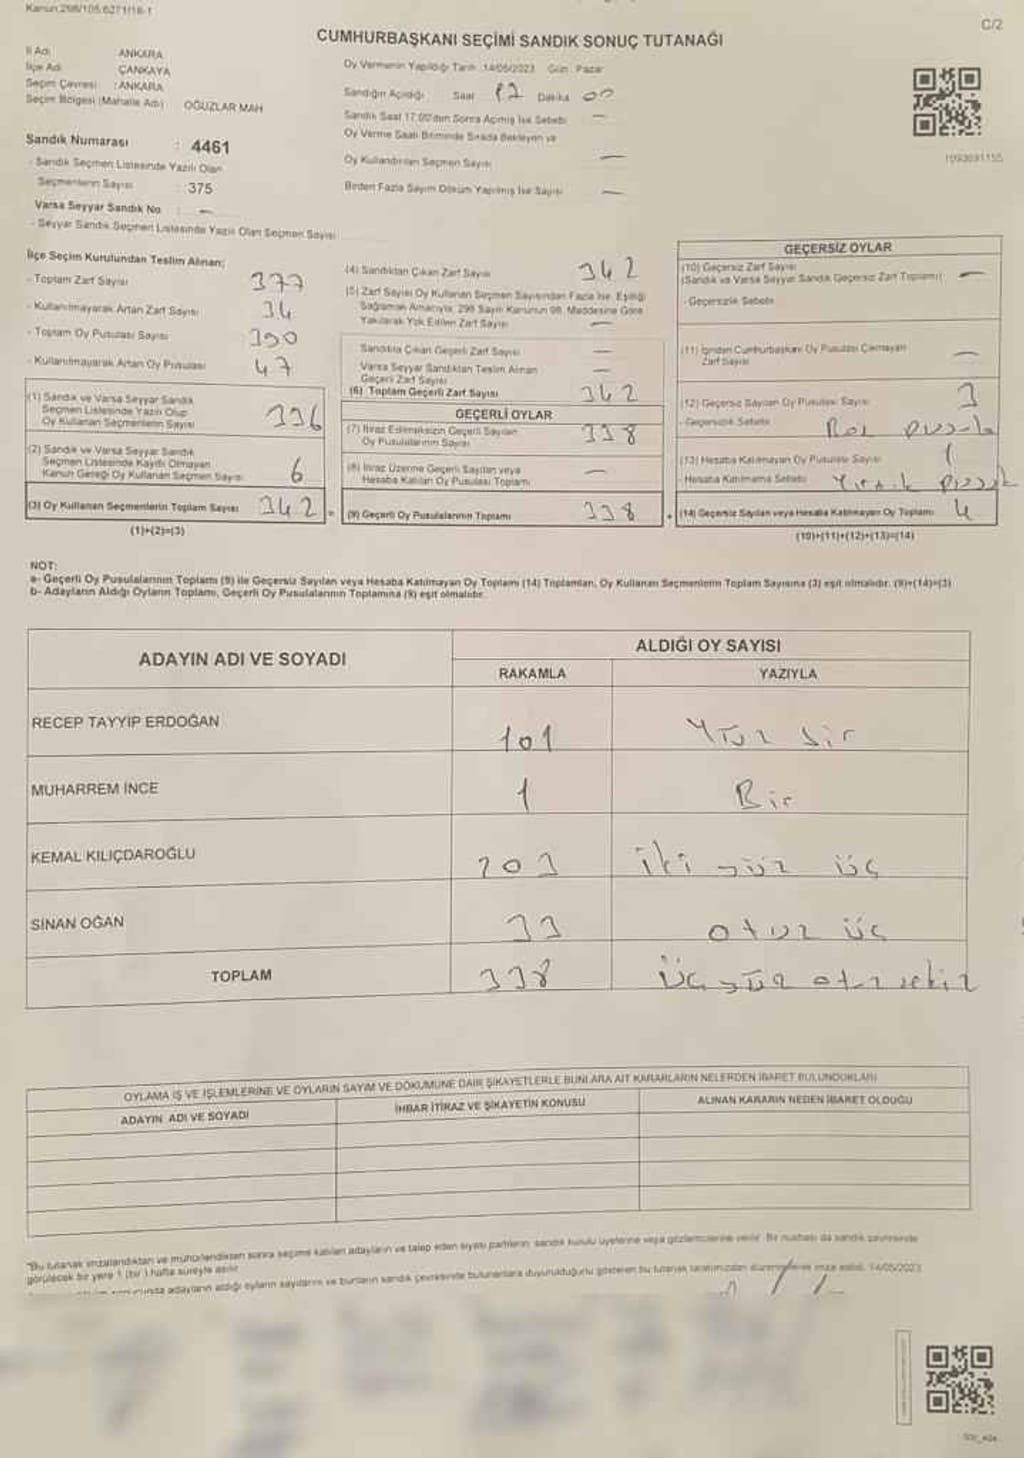 Kanun:298/105.6271/16-1
C/2
CUMHURBAŞKANI SEÇİMİ SANDIK SONUÇ TUTANAĞI
İl Adı : ANKARA
İlçe Adı : ÇANKAYA
Seçim Çevresi : ANKARA
Seçim Bölgesi (Mahalle Adı) OĞUZLAR MAH
Sandık Numarası : 4461
- Sandık Seçmen Listesinde Yazılı Olan
Seçmenlerin Sayısı : 375
Varsa Seyyar Sandık No : —
- Seyyar Sandık Seçmen Listesinde Yazılı Olan Seçmen Sayısı
Oy Vermenin Yapıldığı Tarih :14/05/2023 Gün : Pazar
Sandığın Açıldığı Saat 17 Dakika 00
Sandık Saat 17.00'dan Sonra Açılmış İse Sebebi —
Oy Verme Saati Bitiminde Sırada Bekleyen ve
Oy Kullandırılan Seçmen Sayısı —
Birden Fazla Sayım Döküm Yapılmış İse Sayısı —
1093691155
İlçe Seçim Kurulundan Teslim Alınan;
- Toplam Zarf Sayısı 377
- Kullanılmayarak Artan Zarf Sayısı 34
- Toplam Oy Pusulası Sayısı 390
- Kullanılmayarak Artan Oy Pusulası 47
(1) Sandık ve Varsa Seyyar Sandık
Seçmen Listesinde Yazılı Olup
Oy Kullanan Seçmenlerin Sayısı 336
(2) Sandık ve Varsa Seyyar Sandık
Seçmen Listesinde Kaydı Olmayan
Kanun Gereği Oy Kullanan Seçmen Sayısı 6
(3) Oy Kullanan Seçmenlerin Toplam Sayısı 342
(1)+(2)=(3)
(4) Sandıktan Çıkan Zarf Sayısı 342
(5) Zarf Sayısı Oy Kullanan Seçmen Sayısından Fazla İse, Eşitliği
Sağlamak Amacıyla, 298 Sayılı Kanunun 98. Maddesine Göre
Yakılarak Yok Edilen Zarf Sayısı —
Sandıkta Çıkan Geçerli Zarf Sayısı —
Varsa Seyyar Sandıktan Teslim Alınan
Geçerli Zarf Sayısı —
(6) Toplam Geçerli Zarf Sayısı 342
GEÇERLİ OYLAR
(7) İtiraz Edilmeksizin Geçerli Sayılan
Oy Pusulalarının Sayısı 338
(8) İtiraz Üzerine Geçerli Sayılan veya
Hesaba Katılan Oy Pusulası Toplamı —
= (9) Geçerli Oy Pusulalarının Toplamı 338
GEÇERSİZ OYLAR
(10) Geçersiz Zarf Sayısı
(Sandık ve Varsa Seyyar Sandık Geçersiz Zarf Toplamı) —
- Geçersizlik Sebebi
(11) İçinden Cumhurbaşkanı Oy Pusulası Çıkmayan
Zarf Sayısı —
(12) Geçersiz Sayılan Oy Pusulası Sayısı 3
- Geçersizlik Sebebi Boş pusula
(13) Hesaba Katılmayan Oy Pusulası Sayısı 1
- Hesaba Katılmama Sebebi Yırtık pusula
+ (14) Geçersiz Sayılan veya Hesaba Katılmayan Oy Toplamı 4
(10)+(11)+(12)+(13)=(14)
NOT:
a- Geçerli Oy Pusulalarının Toplamı (9) ile Geçersiz Sayılan veya Hesaba Katılmayan Oy Toplamı (14) Toplamları, Oy Kullanan Seçmenlerin Toplam Sayısına (3) eşit olmalıdır. (9)+(14)=(3)
b- Adayların Aldığı Oyların Toplamı, Geçerli Oy Pusulalarının Toplamına (9) eşit olmalıdır.
ADAYIN ADI VE SOYADI ALDIĞI OY SAYISI
RAKAMLA YAZIYLA
RECEP TAYYİP ERDOĞAN 101 Yüz bir
MUHARREM İNCE 1 Bir
KEMAL KILIÇDAROĞLU 203 iki yüz üç
SİNAN OĞAN 33 otuz üç
TOPLAM 338 üç yüz otuz sekiz
OYLAMA İŞ VE İŞLEMLERİNE VE OYLARIN SAYIM VE DÖKÜMÜNE DAİR ŞİKAYETLERLE BUNLARA AİT KARARLARIN NELERDEN İBARET BULUNDUKLARI
ADAYIN ADI VE SOYADI İHBAR İTİRAZ VE ŞİKAYETİN KONUSU ALINAN KARARIN NEDEN İBARET OLDUĞU
"Bu tutanak imzalandıktan ve mühürlendikten sonra seçime katılan adayların ve talep eden siyasi partilerin sandık kurulu üyelerine veya gözlemcilerine verilir. Bir nushası da sandık çevresinde
görülecek bir yere 1 (bir) hafta süreyle asılır.
adayların aldığı oyların sayılarını ve bunların sandık çevresinde bulunanlara duyurulduğunu gösteren bu tutanak tarafımızdan düzenlenerek imza edildi. 14/05/2023